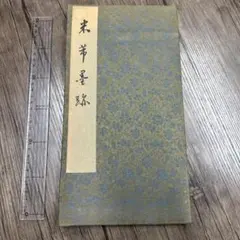 米芾墨跡